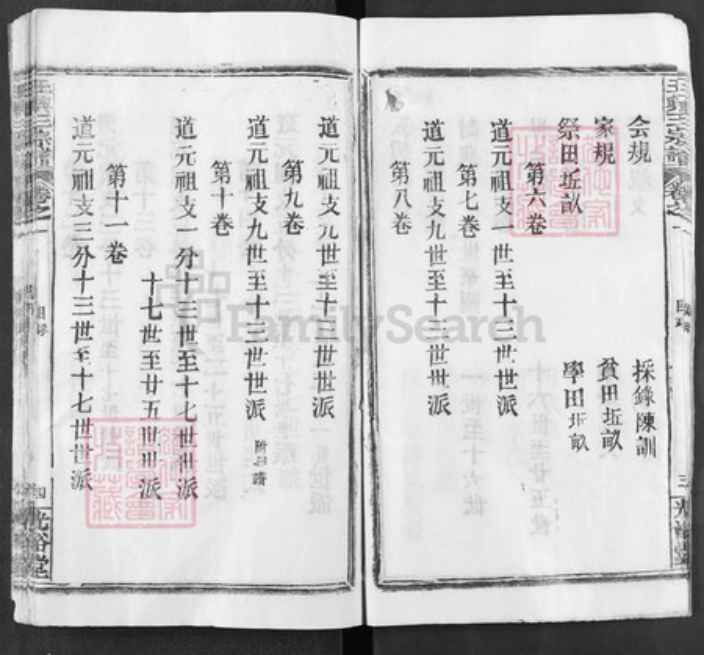 会規　採錄陳訓
家規　貧田坵畝
祭田坵畝　學田坵畝
第六卷
道元祖支一世至十三世世派
第七卷
道元祖支九世至十三世世派
第八卷
道元祖支九世至十三世世派
第九卷
道元祖支九世至十三世世派
第十卷
道元祖支一分十三世至十七世世派
十七世至廿五世世派
第十一卷
道元祖支三分十三世至十七世世派
目錄
三
四
光裕堂
FamilySearch